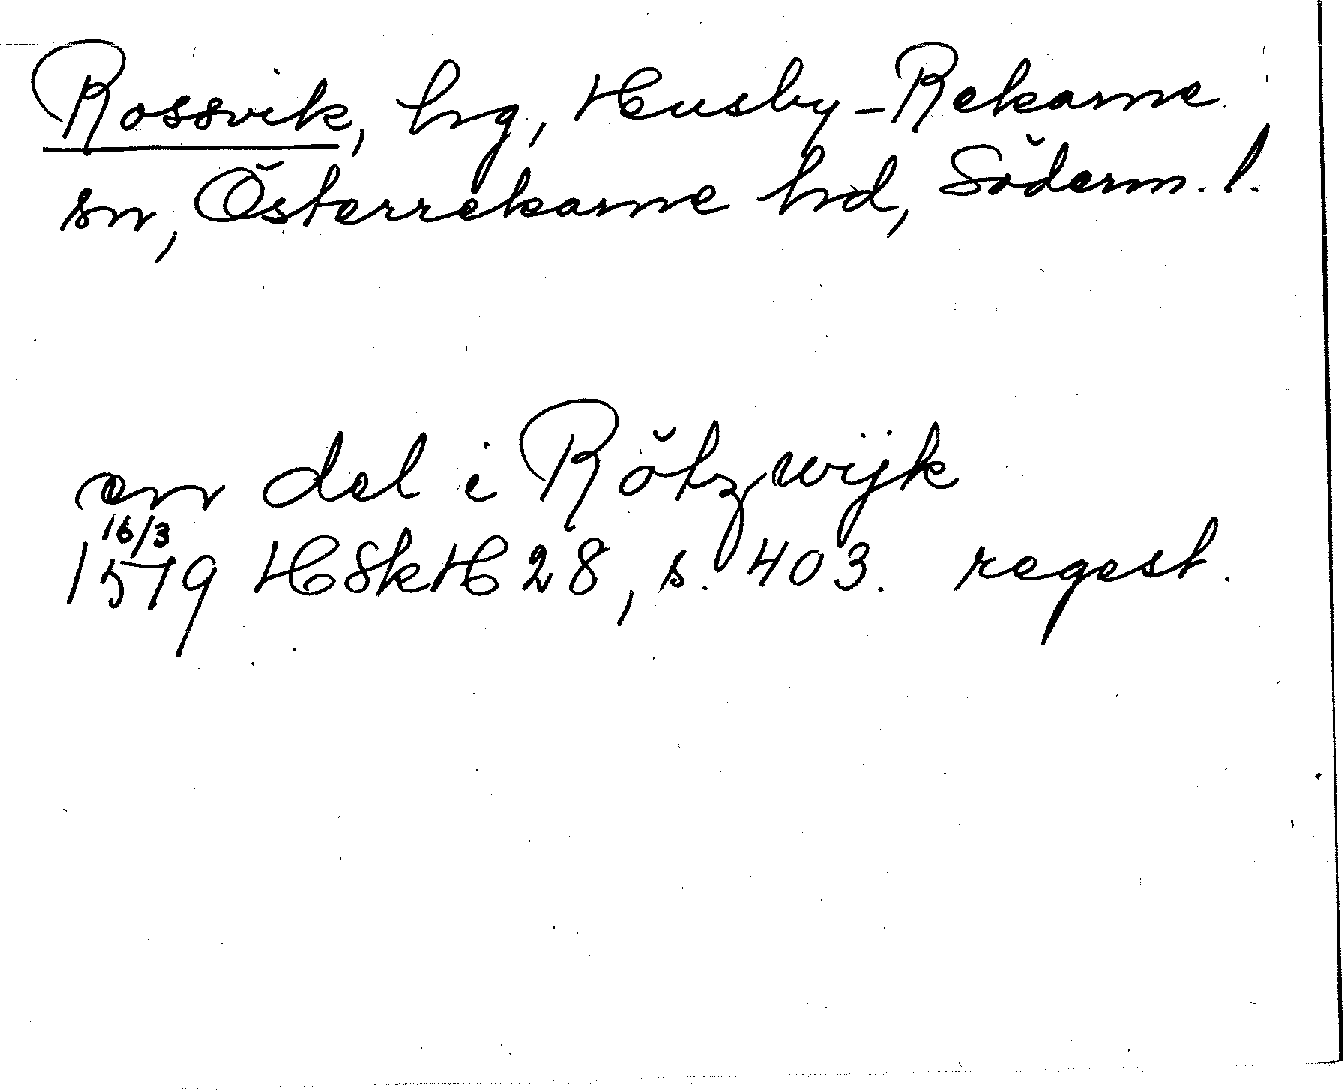 Rossvik, hrg, Husby-Rekarne
sn, Österrekarne hrd, Söderm. l.
en del i Rötzwijk
16/3
1579 HSkH 28, s. 403. regest.